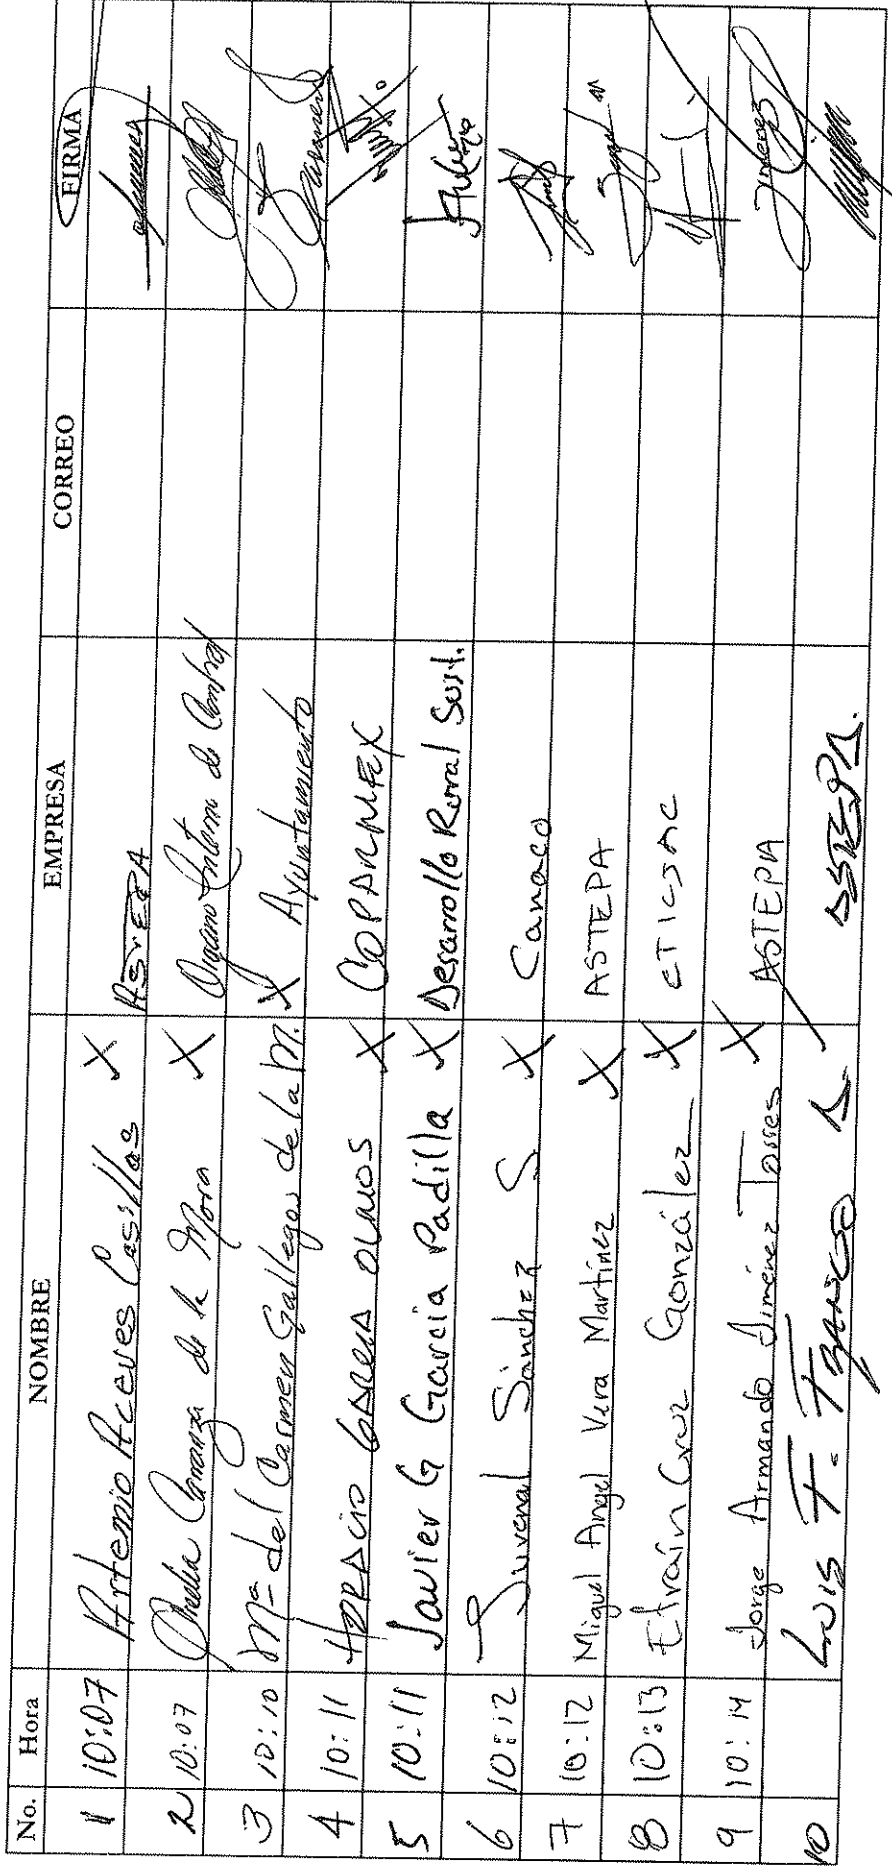 No. Hora NOMBRE EMPRESA CORREO FIRMA
1 10:07 Artemio Aceves Casillas X ASTEPA
2 10:07 Carranza de la Mora X Organo Interno de Control
3 10:10 Mª del Carmen Gallegos de la M. X Ayuntamiento
4 10:11 HORACIO GARCIA OLMOS X COPARMEX
5 10:11 Javier G García Padilla X Desarrollo Rural Sust.
6 10:12 Juvenal Sánchez S X Canaco
7 10:12 Miguel Angel Vera Martínez X ASTEPA
8 10:13 Efraín Cruz González X CTICSAC
9 10:14 Jorge Armando Jiménez Torres X ASTEPA Jimenez
10 Luis F. FRANCO A. / ASTEPA.